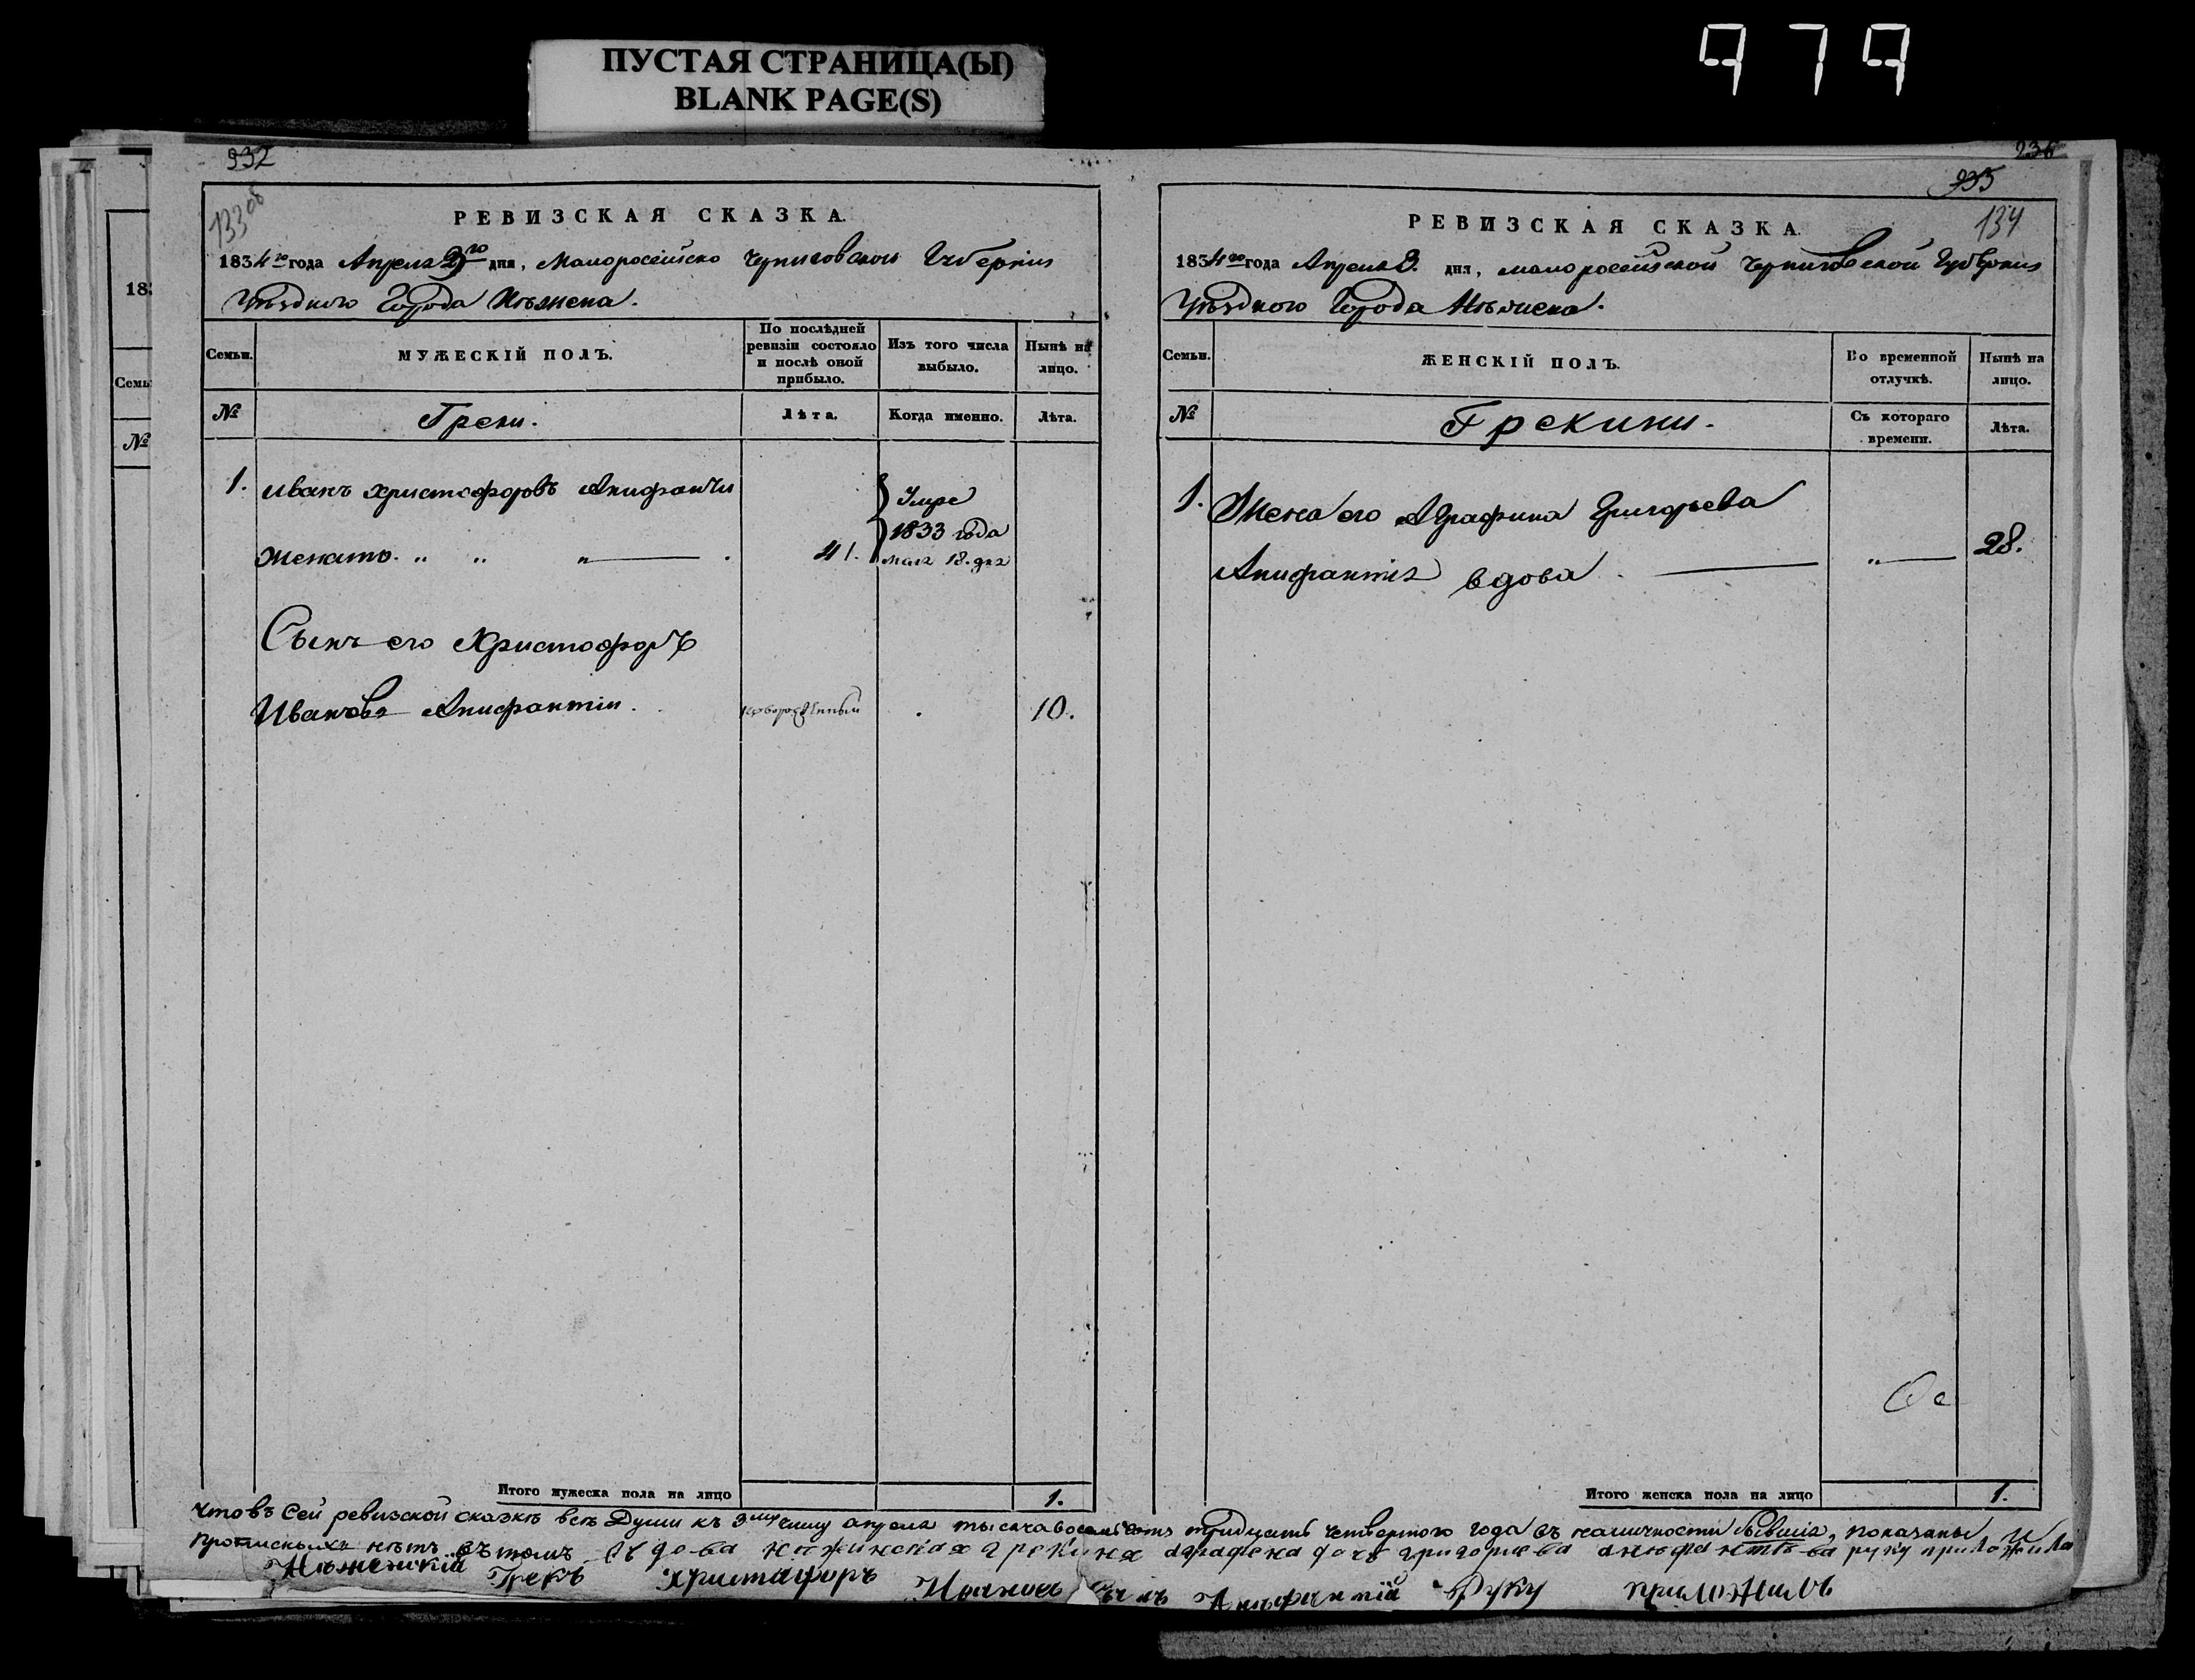 ПУСТАЯ СТРАНИЦА(Ы)
BLANK PAGE(S)
979
932
133 об
РЕВИЗСКАЯ СКАЗКА.
1834 го года Апреля дня, Малоросейско Черниговской Губернии
уѣздного Города Нѣжена.
Семьи.
МУЖЕСКІЙ ПОЛЪ.
По послѣдней ревизіи состояло и послѣ оной прибыло.
Изъ того числа выбыло.
Нынѣ на лицо.
№
Греки.
Лѣта.
Когда именно.
Лѣта.
1. Иванъ Христофоровъ
Умре
1833 года
женатъ. „ „ „ 41. мая 18. дня
Сынъ его Христофоръ
Ивановъ Анифантіи. новорожденный 10.
Итого мужеска пола на лицо 1.
236
935
134
РЕВИЗСКАЯ СКАЗКА.
1834 го года Апреля 3. дня, малоросейской Черниговской Губернии
уѣздного Города Нѣжена.
Семьи.
ЖЕНСКІЙ ПОЛЪ.
Во временной отлучкѣ.
Нынѣ на лицо.
№
Грекини.
Съ котораго времени.
Лѣта.
1. Жена его Аграфина Григорьева
Анифантія вдова „ 28.
Итого женска пола на лицо 1.
что въ Сей ревизской сказкѣ всѣ Души къ 3му числу апреля тысяча восемьсотъ тридцать четвертого года въ наличности бывшія, показаны и
прописныхъ нѣтъ въ томъ вдова нежинская грекиня аграфена дочь григориева руку приложила
Нѣженскій Грекъ Христафоръ Ивановъ Сынъ Анифантій Руку приложилъ
18
Семь
№